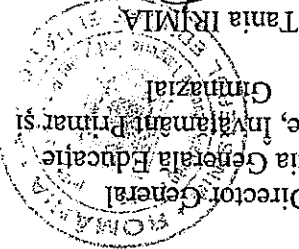 Director General
ia Generală Educație
e, Învățământ Primar și
Gimnazial
Tania IRJMIA
ROMÂNIA